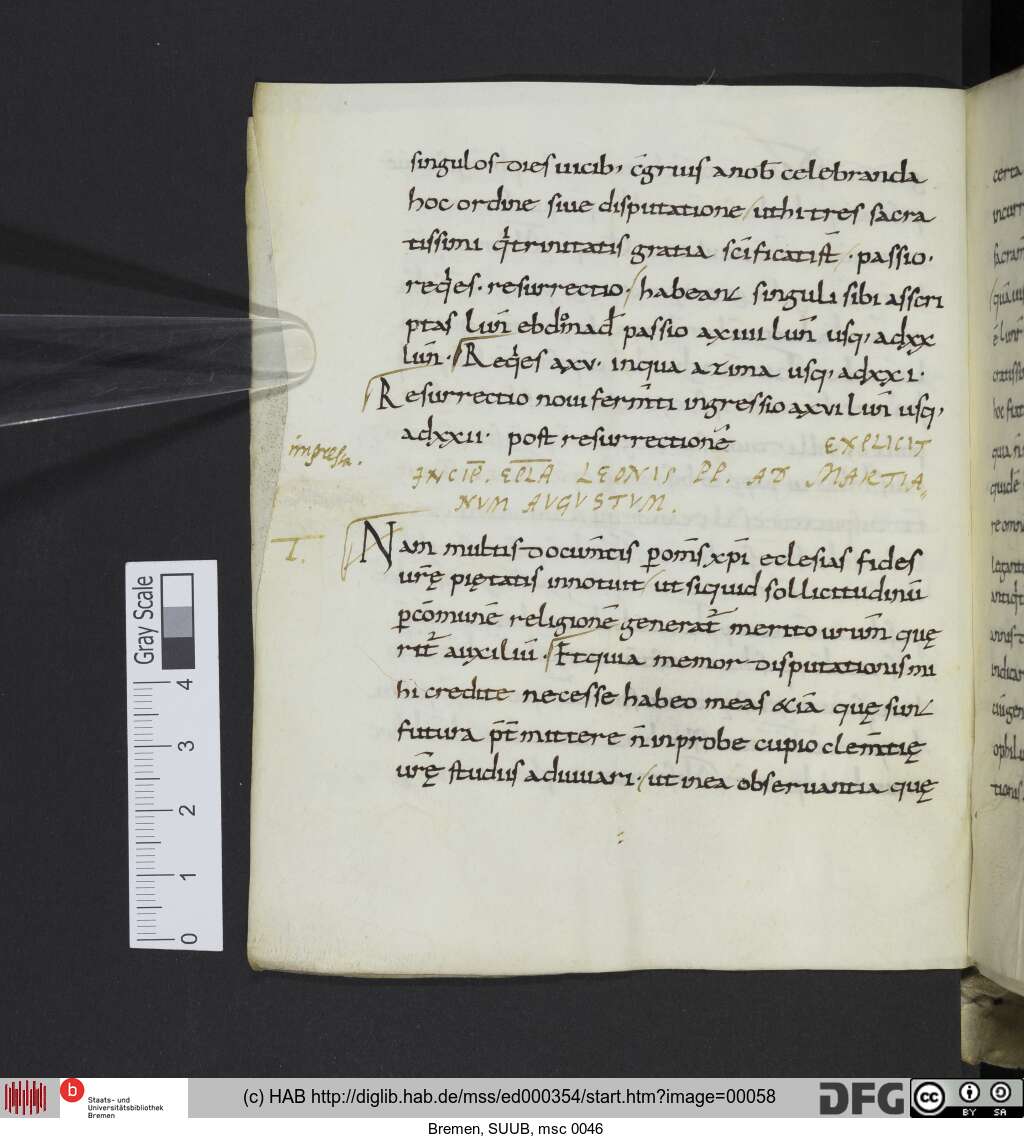 singulos dies uicib; c̄gruis anob̄ celebranda
hoc ordine siue disputatione uthi tres sacra
tissimi q̇ trinitatis gratia sc̄ificati sт̄ · passio ·
req̇es · resurrectio · habeant singuli sibi asscri
ptas lun̄ ebdōnad passio axiiii lun̄ usq; adxx
lun̄ · Req̇es axv · inqua azima usq; adxxi ·
Resurrectio noui ferm̄ti ingressio axvi lun̄ usq;
adxxii · post resurrectionē EXPLICIT
impressa.
INCIP̄. EPLA LEONIS PP. AD MARTIA
NUM AUGUSTUM.
I. Nam multis docum̄tis p om̄s xp̄i eclesias fides
ur̄ę pietatis innotuit ut siquid sollicitudinū
p cōmunē religionē generat̄ merito urūm quę
rit̄ auxiliū · Et quia memor disputationis mi
hi credite necesse habeo meas &iā quę sunt
futura p̄t mittere n̄ inprobe cupio clem̄tię
ur̄ę studiis adiuuari · ut mea obseruantia quę
certa
incurr
hoc fuit
quia n̄
quidē
re omni
antiq̇t
indicar
tionis
Gray Scale
4
3
2
1
0
b
Staats- und
Universitätsbibliothek
Bremen
(c) HAB http://diglib.hab.de/mss/ed000354/start.htm?image=00058
DFG
cc
BY SA
Bremen, SUUB, msc 0046